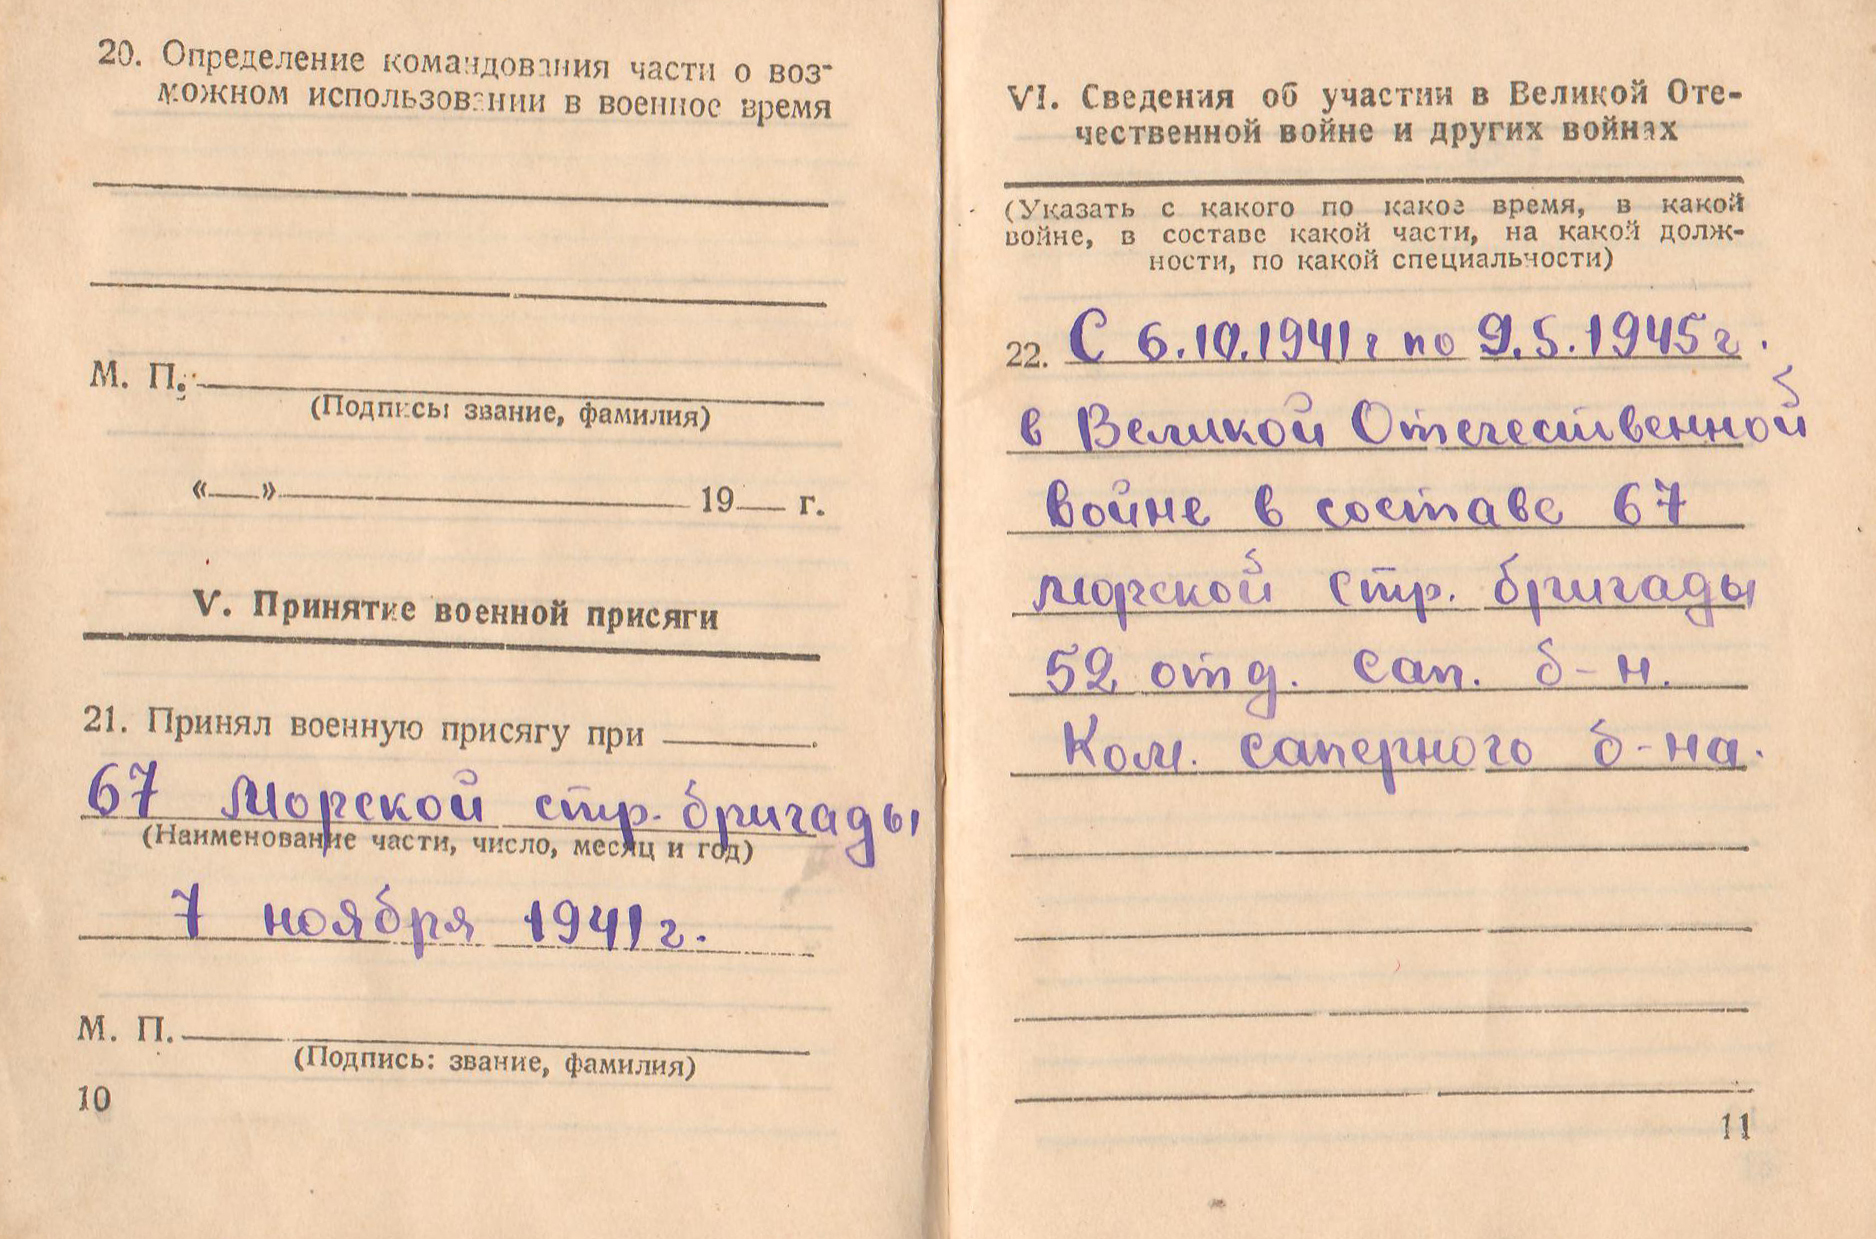 20. Определение командования части о воз-
можном использовании в военное время
М. П.
(Подпись: звание, фамилия)
«__» 19__ г.
V. Принятие военной присяги
21. Принял военную присягу при
67 Морской стр. бригады
(Наименование части, число, месяц и год)
7 ноября 1941 г.
М. П.
(Подпись: звание, фамилия)
10
VI. Сведения об участии в Великой Оте-
чественной войне и других войнах
(Указать с какого по какое время, в какой
войне, в составе какой части, на какой долж-
ности, по какой специальности)
22. С 6.10.1941 г по 9.5.1945 г.
в Великой Отечественной
войне в составе 67
морской стр. бригады
52 отд. сап. б-н.
Ком. саперного б-на.
11